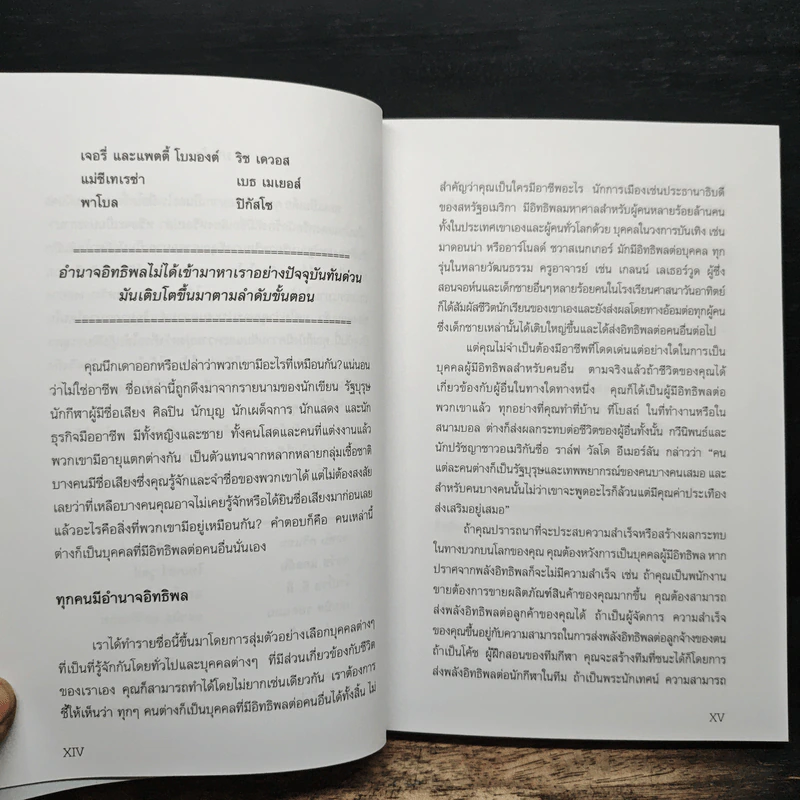 เจอรี่ และแพตตี้ โบมองต์ ริช เดวอส
แม่ชีเทเรซ่า เบธ เมเยอส์
พาโบล ปิกัสโซ
อำนาจอิทธิพลไม่ได้เข้ามาหาเราอย่างปัจจุบันทันด่วน
มันเติบโตขึ้นมาตามลำดับขั้นตอน
คุณนึกเดาออกหรือเปล่าว่าพวกเขามีอะไรที่เหมือนกัน?แน่นอน
ว่าไม่ใช่อาชีพ ชื่อเหล่านี้ถูกดึงมาจากรายนามของนักเขียน รัฐบุรุษ
นักกีฬาผู้มีชื่อเสียง ศิลปิน นักบุญ นักเผด็จการ นักแสดง และนัก
ธุรกิจมืออาชีพ มีทั้งหญิงและชาย ทั้งคนโสดและคนที่แต่งงานแล้ว
พวกเขามีอายุแตกต่างกัน เป็นตัวแทนจากหลากหลายกลุ่มเชื้อชาติ
บางคนมีชื่อเสียงซึ่งคุณรู้จักและจำชื่อของพวกเขาได้ แต่ไม่ต้องสงสัย
เลยว่าที่เหลือบางคนคุณอาจไม่เคยรู้จักหรือได้ยินชื่อเสียงมาก่อนเลย
แล้วอะไรคือสิ่งที่พวกเขามีอยู่เหมือนกัน? คำตอบก็คือ คนเหล่านี้
ต่างก็เป็นบุคคลที่มีอิทธิพลต่อคนอื่นนั่นเอง
ทุกคนมีอำนาจอิทธิพล
เราได้ทำรายชื่อนี้ขึ้นมาโดยการสุ่มตัวอย่างเลือกบุคคลต่างๆ
ที่เป็นที่รู้จักกันโดยทั่วไปและบุคคลต่างๆ ที่มีส่วนเกี่ยวข้องกับชีวิต
ของเราเอง คุณก็สามารถทำได้โดยไม่ยากเช่นเดียวกัน เราต้องการ
ชี้ให้เห็นว่า ทุกๆ คนต่างก็เป็นบุคคลที่มีอิทธิพลต่อคนอื่นได้ทั้งสิ้น ไม่
XIV
สำคัญว่าคุณเป็นใครมีอาชีพอะไร นักการเมืองเช่นประธานาธิบดี
ของสหรัฐอเมริกา มีอิทธิพลมหาศาลสำหรับผู้คนหลายร้อยล้านคน
ทั้งในประเทศเขาเองและผู้คนทั่วโลกด้วย บุคคลในวงการบันเทิง เช่น
มาดอนน่า หรืออาร์โนลด์ ชวาสเนกเกอร์ มักมีอิทธิพลต่อบุคคล ทุก
รุ่นในหลายวัฒนธรรม ครูอาจารย์ เช่น เกลนน์ เลเธอร์วูด ผู้ซึ่ง
สอนจอห์นและเด็กชายอื่นๆหลายร้อยคนในโรงเรียนศาสนาวันอาทิตย์
ก็ได้สัมผัสชีวิตนักเรียนของเขาเองและยังส่งผลโดยทางอ้อมต่อทุกผู้คน
ซึ่งเด็กชายเหล่านั้นได้เติบใหญ่ขึ้นและได้ส่งอิทธิพลต่อคนอื่นต่อไป
แต่คุณไม่จำเป็นต้องมีอาชีพที่โดดเด่นแต่อย่างใดในการเป็น
บุคคลผู้มีอิทธิพลสำหรับคนอื่น ตามจริงแล้วถ้าชีวิตของคุณได้
เกี่ยวข้องกับผู้อื่นในทางใดทางหนึ่ง คุณก็ได้เป็นผู้มีอิทธิพลต่อ
พวกเขาแล้ว ทุกอย่างที่คุณทำที่บ้าน ที่โบสถ์ ในที่ทำงานหรือใน
สนามบอล ต่างก็ส่งผลกระทบต่อชีวิตของผู้อื่นทั้งนั้น กวีนิพนธ์และ
นักปรัชญาชาวอเมริกันชื่อ ราล์ฟ วัลโด อีเมอร์สัน กล่าวว่า “คน
แต่ละคนต่างก็เป็นรัฐบุรุษและเทพพยากรณ์ของคนบางคนเสมอ และ
สำหรับคนบางคนนั้นไม่ว่าเขาจะพูดอะไรก็ล้วนแต่มีคุณค่าประเทือง
ส่งเสริมอยู่เสมอ”
ถ้าคุณปรารถนาที่จะประสบความสำเร็จหรือสร้างผลกระทบ
ในทางบวกบนโลกของคุณ คุณต้องหวังการเป็นบุคคลผู้มีอิทธิพล หาก
ปราศจากพลังอิทธิพลก็จะไม่มีความสำเร็จ เช่น ถ้าคุณเป็นพนักงาน
ขายต้องการขายผลิตภัณฑ์สินค้าของคุณมากขึ้น คุณต้องสามารถ
ส่งพลังอิทธิพลต่อลูกค้าของคุณได้ ถ้าเป็นผู้จัดการ ความสำเร็จ
ของคุณขึ้นอยู่กับความสามารถในการส่งพลังอิทธิพลต่อลูกจ้างของตน
ถ้าเป็นโค้ช ผู้ฝึกสอนของทีมกีฬา คุณจะสร้างทีมที่ชนะได้ก็โดยการ
ส่งพลังอิทธิพลต่อนักกีฬาในทีม ถ้าเป็นพระนักเทศน์ ความสามารถ
XV